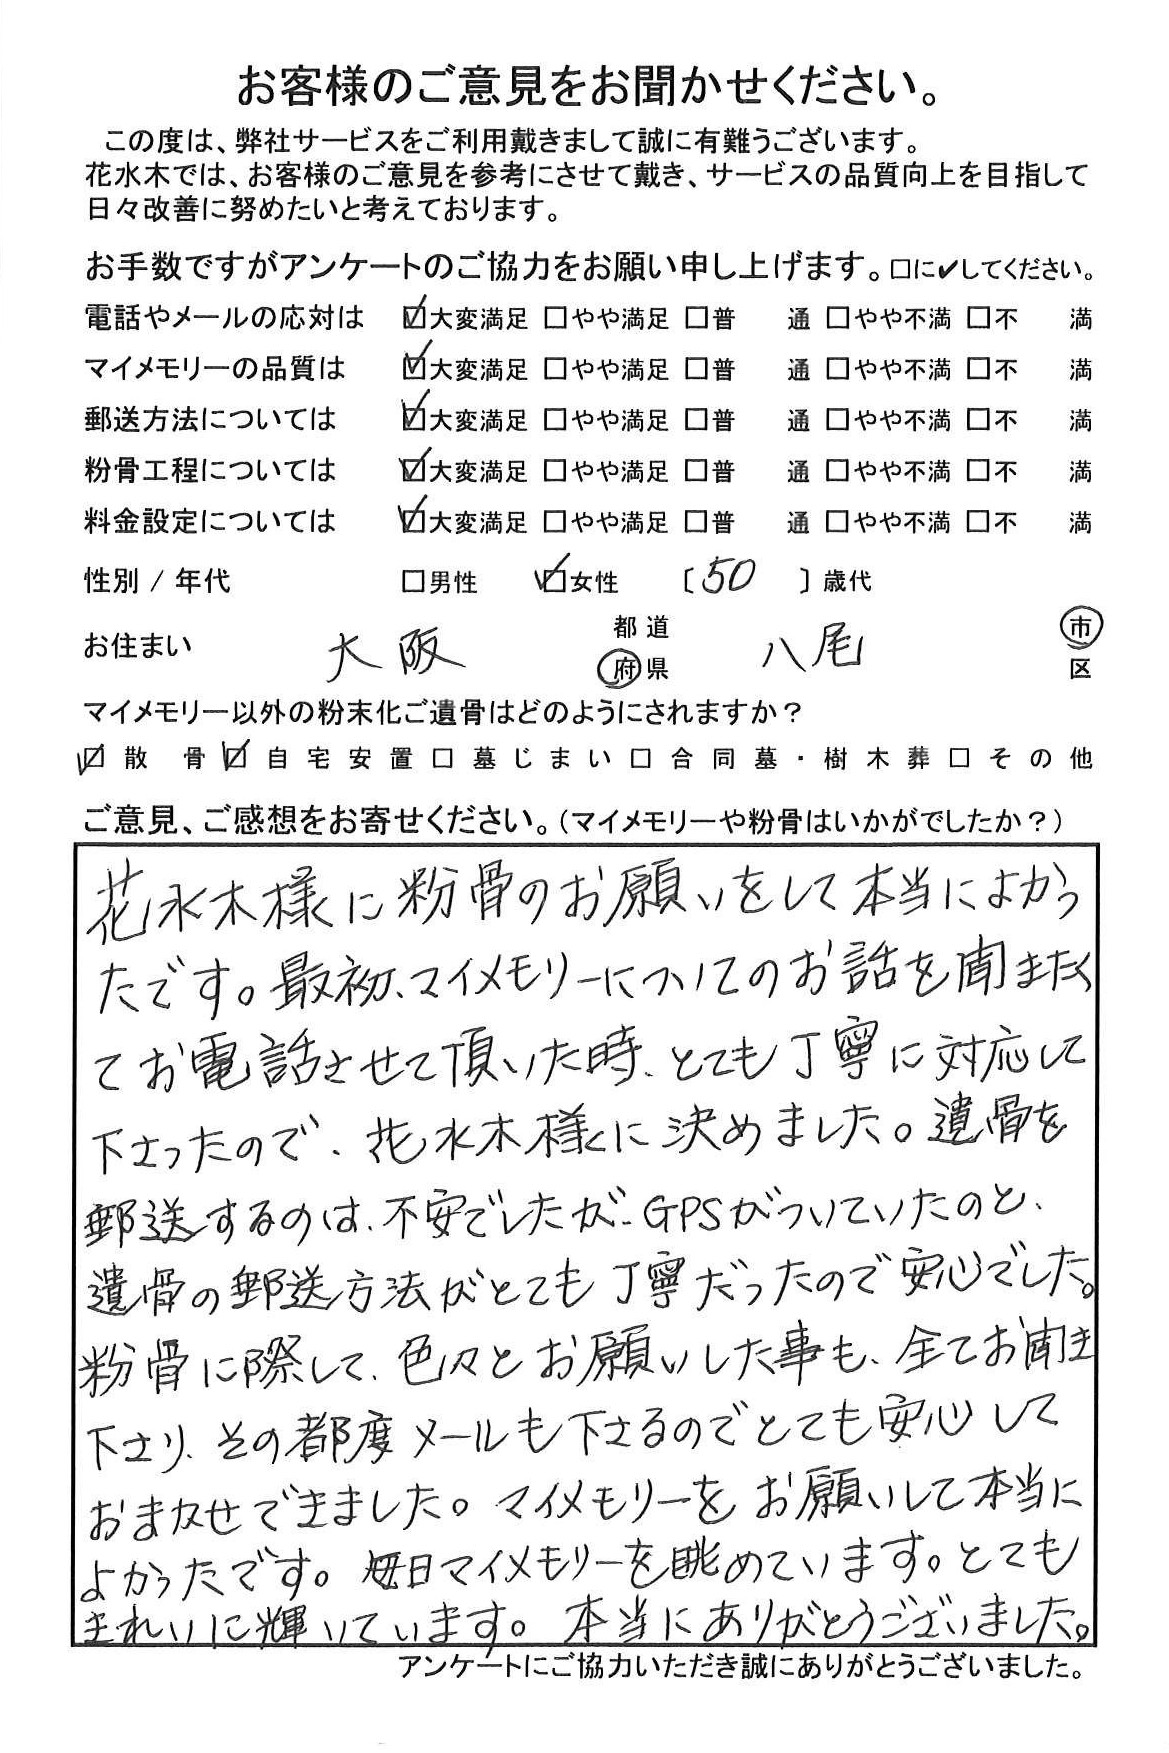 お客様のご意見をお聞かせください。
この度は、弊社サービスをご利用戴きまして誠に有難うございます。
花水木では、お客様のご意見を参考にさせて戴き、サービスの品質向上を目指して
日々改善に努めたいと考えております。
お手数ですがアンケートのご協力をお願い申し上げます。□に✔してください。
電話やメールの応対は ☑大変満足 □やや満足 □普 通 □やや不満 □不 満
マイメモリーの品質は ☑大変満足 □やや満足 □普 通 □やや不満 □不 満
郵送方法については ☑大変満足 □やや満足 □普 通 □やや不満 □不 満
粉骨工程については ☑大変満足 □やや満足 □普 通 □やや不満 □不 満
料金設定については ☑大変満足 □やや満足 □普 通 □やや不満 □不 満
性別 / 年代 □男性 ☑女性 〔50 〕歳代
お住まい 大阪 都道府県 八尾 市区
マイメモリー以外の粉末化ご遺骨はどのようにされますか？
☑散 骨 ☑自宅安置 □墓じまい □合同墓・樹木葬 □その他
ご意見、ご感想をお寄せください。（マイメモリーや粉骨はいかがでしたか？）
花水木様に粉骨のお願いをして本当によかっ
たです。最初、マイメモリーについてのお話を聞きたく
てお電話させて頂いた時、とても丁寧に対応して
下さったので、花水木様に決めました。遺骨を
郵送するのは、不安でしたが、GPSがついていたのと、
遺骨の郵送方法がとても丁寧だったので安心でした。
粉骨に際して、色々とお願いした事も、全てお聞き
下さり、その都度メールも下さるのでとても安心して
おまかせできました。マイメモリーをお願いして本当に
よかったです。毎日マイメモリーを眺めています。とても
きれいに輝いています。本当にありがとうございました。
アンケートにご協力いただき誠にありがとうございました。